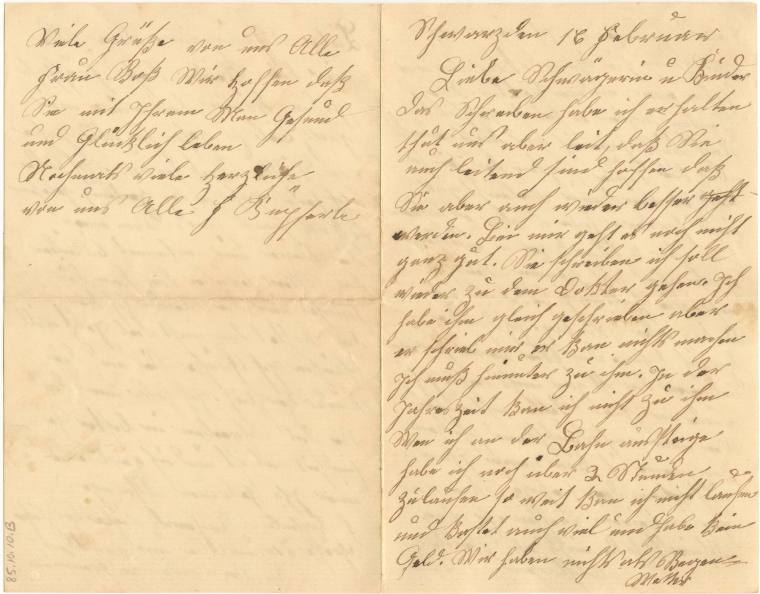 Schwarzden 16 Februar
Liebe Schwägerin u Bruder
Das Schreiben habe ich erhalten
thut uns aber leit, daß Sie
auch leitend sind hoffen daß
Sie aber auch wieder besser geht
werden. Bei mir geht es noch nicht
ganz gut. Sie schreiben ich soll
wieder zu dem Dokter gehen. Ich
habe ihm gleich geschrieben aber
er schrieb mir er kan nichts machen
Ich muß hinunter zu ihm. In der
Jahreszeit kan ich nicht zu ihm
Wen ich an der Bahn aussteige
habe ich noch über 2 Stunden
zulaufen so weit kan ich nicht laufen
und kostet auch viel und habe kein
Geld. Wir haben nichts als Regen
Wetter
Viele Grüße von uns Alle
Frau Voß Wir hoffen daß
Sie mit Ihrem Man Gesund
und Glücklich leben
Nochmals viele herzliche
von uns Alle
85.10.10.B